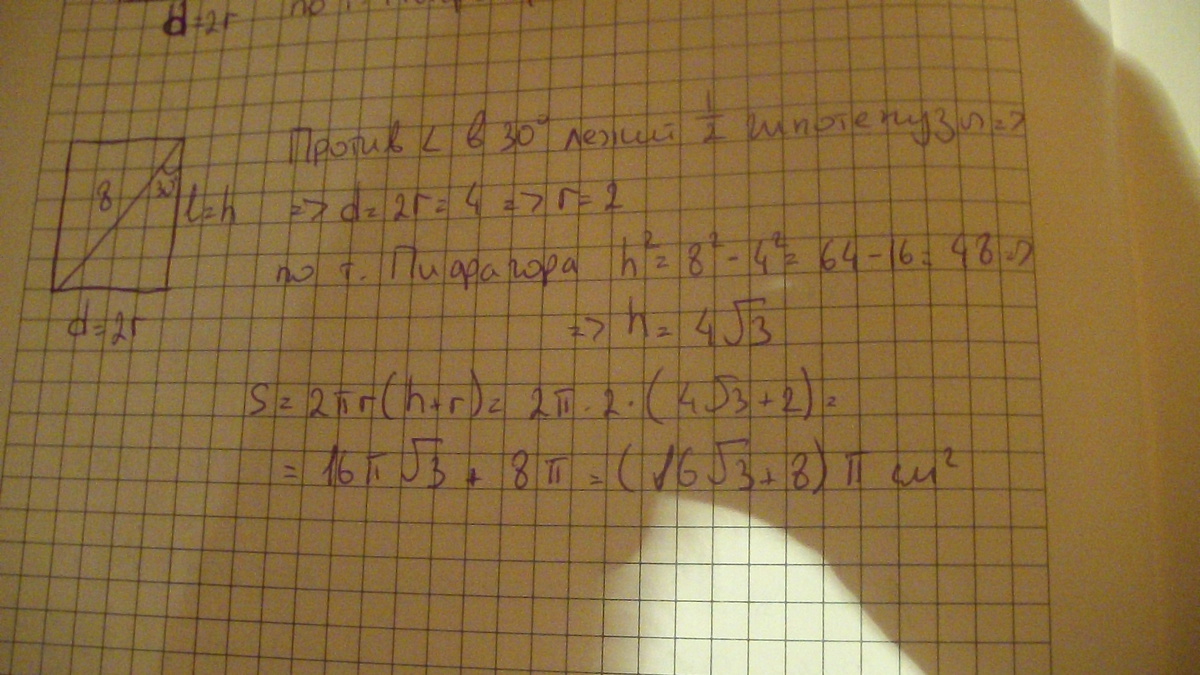 d=2r
Против ∠ в 30° лежит 1/2 гипотенузы =>
8
30°
l=h
=> d=2r=4 => r=2
по т. Пифагора h²= 8²-4²= 64-16= 48 =>
d=2r
=> h= 4√3
S= 2πr(h+r)= 2π·2·(4√3+2)=
= 16π√3 + 8π = (16√3+8)π см²